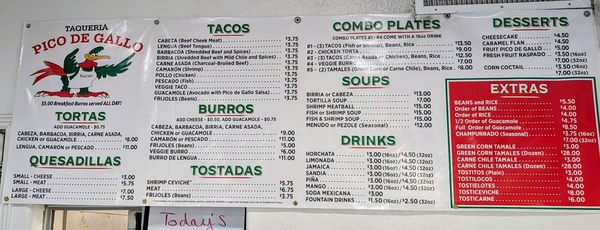 TAQUERIA
PICO DE GALLO
NACHO
$5.00 Breakfast Burros served ALL DAY!
TORTAS
ADD GUACAMOLE - $0.75
CABEZA, BARBACOA, BIRRIA, CARNE ASADA,
CHICKEN or GUACAMOLE $8.00
LENGUA, CAMARÓN or PESCADO $11.00
QUESADILLAS
SMALL - CHEESE $3.00
SMALL - MEAT $5.75
LARGE - CHEESE $7.00
LARGE - MEAT $7.50
TACOS
CABEZA (Beef Cheek Meat) $3.75
LENGUA (Beef Tongue) $3.75
BARBACOA (Shredded Beef and Spices) $3.75
BIRRIA (Shredded Beef with Mild Chile and Spices) $3.75
CARNE ASADA (Charcoal-Broiled Beef) $3.75
CAMARÓN (Shrimp) $3.75
POLLO (Chicken) $3.75
PESCADO (Fish) $3.75
VEGGIE TACO $3.75
GUACAMOLE (Avocado with Pico de Gallo Salsa) $3.75
FRIJOLES (Beans) $3.75
BURROS
ADD CHEESE - $0.50, ADD GUACAMOLE - $0.75
CABEZA, BARBACOA, BIRRIA, CARNE ASADA,
CHICKEN or GUACAMOLE $9.00
CAMARÓN or PESCADO $11.00
FRIJOLES (Beans) $5.00
VEGGIE BURRO $6.00
BURRO DE LENGUA $11.00
TOSTADAS
SHRIMP CEVICHE $5.75
MEAT $6.75
FRIJOLES (Beans) $3.75
Today's
COMBO PLATES
COMBO PLATES #1 - #4 COME WITH A 16oz DRINK
#1 - (3) TACOS (Fish or Shrimp), Beans, Rice $13.50
#2 - CHICKEN TORTA $9.00
#3 - (3) TACOS (Carne Asada or Chicken), Beans, Rice $12.50
#4 - VEGGIE BURRO $7.00
#5 - (2) TAMALES (Green Corn or Carne Chile), Beans, Rice $8.00
SOUPS
BIRRIA or CABEZA $13.00
TORTILLA SOUP $7.00
SHRIMP MEATBALL $15.00
FISH or SHRIMP SOUP $15.00
FISH & SHRIMP SOUP $15.00
MENUDO or PEZOLE (Seasonal) $12.00
DRINKS
HORCHATA $3.00 (16oz)/$4.50 (32oz)
LIMONADA $3.00 (16oz)/$4.50 (32oz)
JAMAICA $3.00 (16oz)/$4.50 (32oz)
SANDIA $3.00 (16oz)/$4.50 (32oz)
PIÑA $3.00 (16oz)/$4.50 (32oz)
MANGO $3.00 (16oz)/$4.50 (32oz)
SODA MEXICANA $3.00
FOUNTAIN DRINKS $1.50 (16oz)/$2.50 (32oz)
DESSERTS
CHEESECAKE $4.50
CARAMEL FLAN $4.50
FRUIT PICO DE GALLO $5.00
FRESH FRUIT RASPADO $3.50 (16oz)
$5.00 (32oz)
CORN COCTAIL $3.50 (16oz)
$7.00 (32oz)
EXTRAS
BEANS and RICE $5.50
Order of BEANS $4.00
Order of RICE $4.00
1/2 Order of GUACAMOLE $4.75
Full Order of GUACAMOLE $8.50
CHAMPURRADO (Seasonal) $3.75 (16oz)
$7.00 (32oz)
GREEN CORN TAMALE $3.00
GREEN CORN TAMALES (Dozen) $28.00
CARNE CHILE TAMALE $3.00
CARNE CHILE TAMALES (Dozen) $28.00
TOSTITOS (Plain) $3.00
TOSTILOCOS $4.00
TOSTIELOTES $4.00
TOSTICEVICHE $8.00
TOSTICARNE $6.00